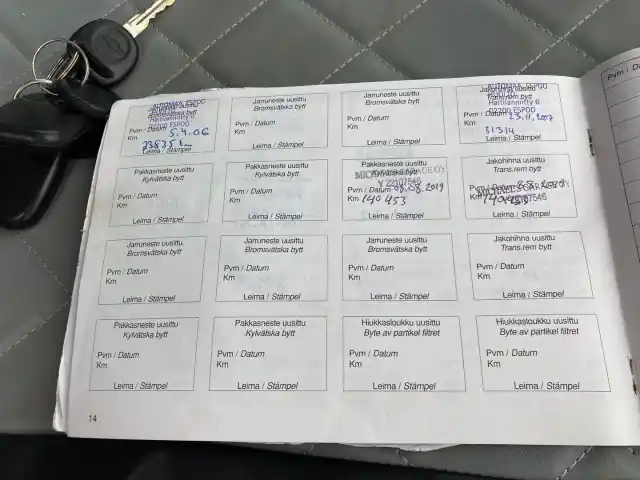 AUTOMAA ESPOO
02200 ESPOO
Pvm / Datum 5.4.06
Km
Leima / Stämpel
Jarruneste uusittu
Bromsvätska bytt
Pvm / Datum
Km
Leima / Stämpel
Jarruneste uusittu
Bromsvätska bytt
Pvm / Datum
Km
Leima / Stämpel
AUTOMAA ESPOO
Jakohihna uusittu
Trans.rem bytt
02200 ESPOO
Pvm / Datum 23.11.2007
Km 51314
Leima / Stämpel
Pvm / Da
Pakkasneste uusittu
Kylvätska bytt
Pvm / Datum
Km
Leima / Stämpel
Pakkasneste uusittu
Kylvätska bytt
Pvm / Datum
Km
Leima / Stämpel
Pakkasneste uusittu
Kylvätska bytt
Y 22107546
Pvm / Datum 08.08.2019
Km 140 453
Leima / Stämpel
Jakohihna uusittu
Trans.rem bytt
Pvm / Datum 8.8.2019
Km 140453
Leima / Stämpel
Jarruneste uusittu
Bromsvätska bytt
Pvm / Datum
Km
Leima / Stämpel
Jarruneste uusittu
Bromsvätska bytt
Pvm / Datum
Km
Leima / Stämpel
Jarruneste uusittu
Bromsvätska bytt
Pvm / Datum
Km
Leima / Stämpel
Jakohihna uusittu
Trans.rem bytt
Pvm / Datum
Km
Leima / Stämpel
Pakkasneste uusittu
Kylvätska bytt
Pvm / Datum
Km
Leima / Stämpel
Pakkasneste uusittu
Kylvätska bytt
Pvm / Datum
Km
Leima / Stämpel
Hiukkasloukku uusittu
Byte av partikel filtret
Pvm / Datum
Km
Leima / Stämpel
Hiukkasloukku uusittu
Byte av partikel filtret
Pvm / Datum
Km
Leima / Stämpel
14